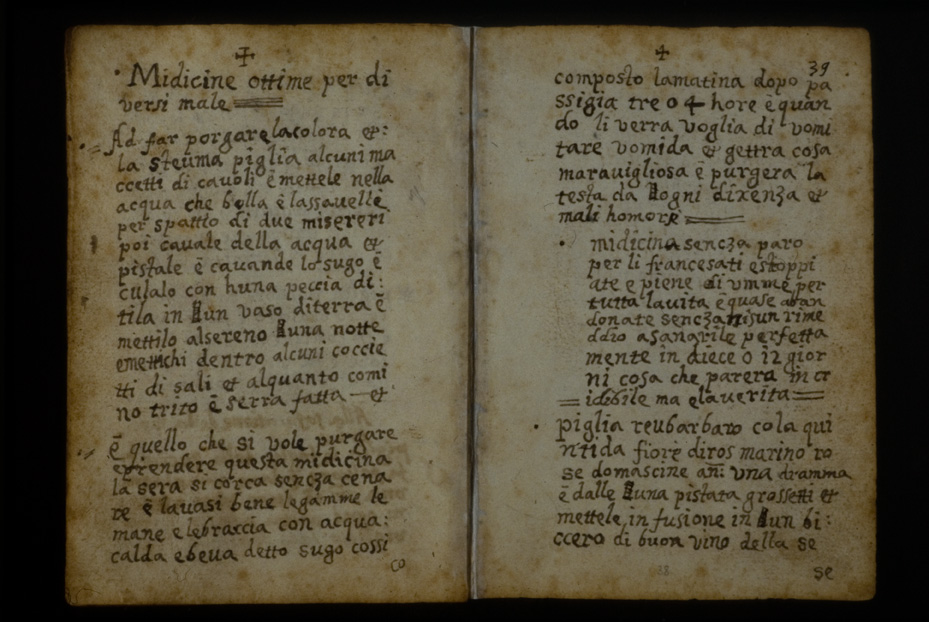 ✠
Midicine ottime per di
versi male
Ad far porgare lacolora et:
la steuma piglia alcuni ma
ccetti di cauoli ē mettele nella
acqua che bolla ē lassauelle
per spattio di due misereri
poi cauale della acqua et
pistale ē cauande lo sugo ē
culalo con huna peccia di:
tila in un vaso diterra ē
mettilo alsereno una notte
emettichi dentro alcuni coccie
tti di sali et alquanto comi
no trito ē serra fatta et
ē quello che si vole purgare
eprendere questa midicina
la sera si corca sencza cena
re ē lauasi bene legamme le
mane elebraccia con acqua:
calda ebeua detto sugo cossi
co
✠
39
composto lamatina dopo pa
ssigia tre o 4 hore ē quan
do li verra voglia di vomi
tare vomida et gettra cosa
marauigliosa ē purgera la
testa da ogni dixenza et
mali homore
midicina sencza paro
per li francesati estoppi
ate e piene di vmme per
tutta lauita ē quase aban
donate sencza nisun rime
ddio asanarile perfetta
mente in diece o 12 gior
ni cosa che parera in cr
idebile ma elauerita
piglia reubarbaro cola qui
ntida fiore diros marino ro
se domascine an: una dramma
ē dalle una pistata grossetti et
mettele in fusione in un bi:
ccero di buon vino della se
38
se